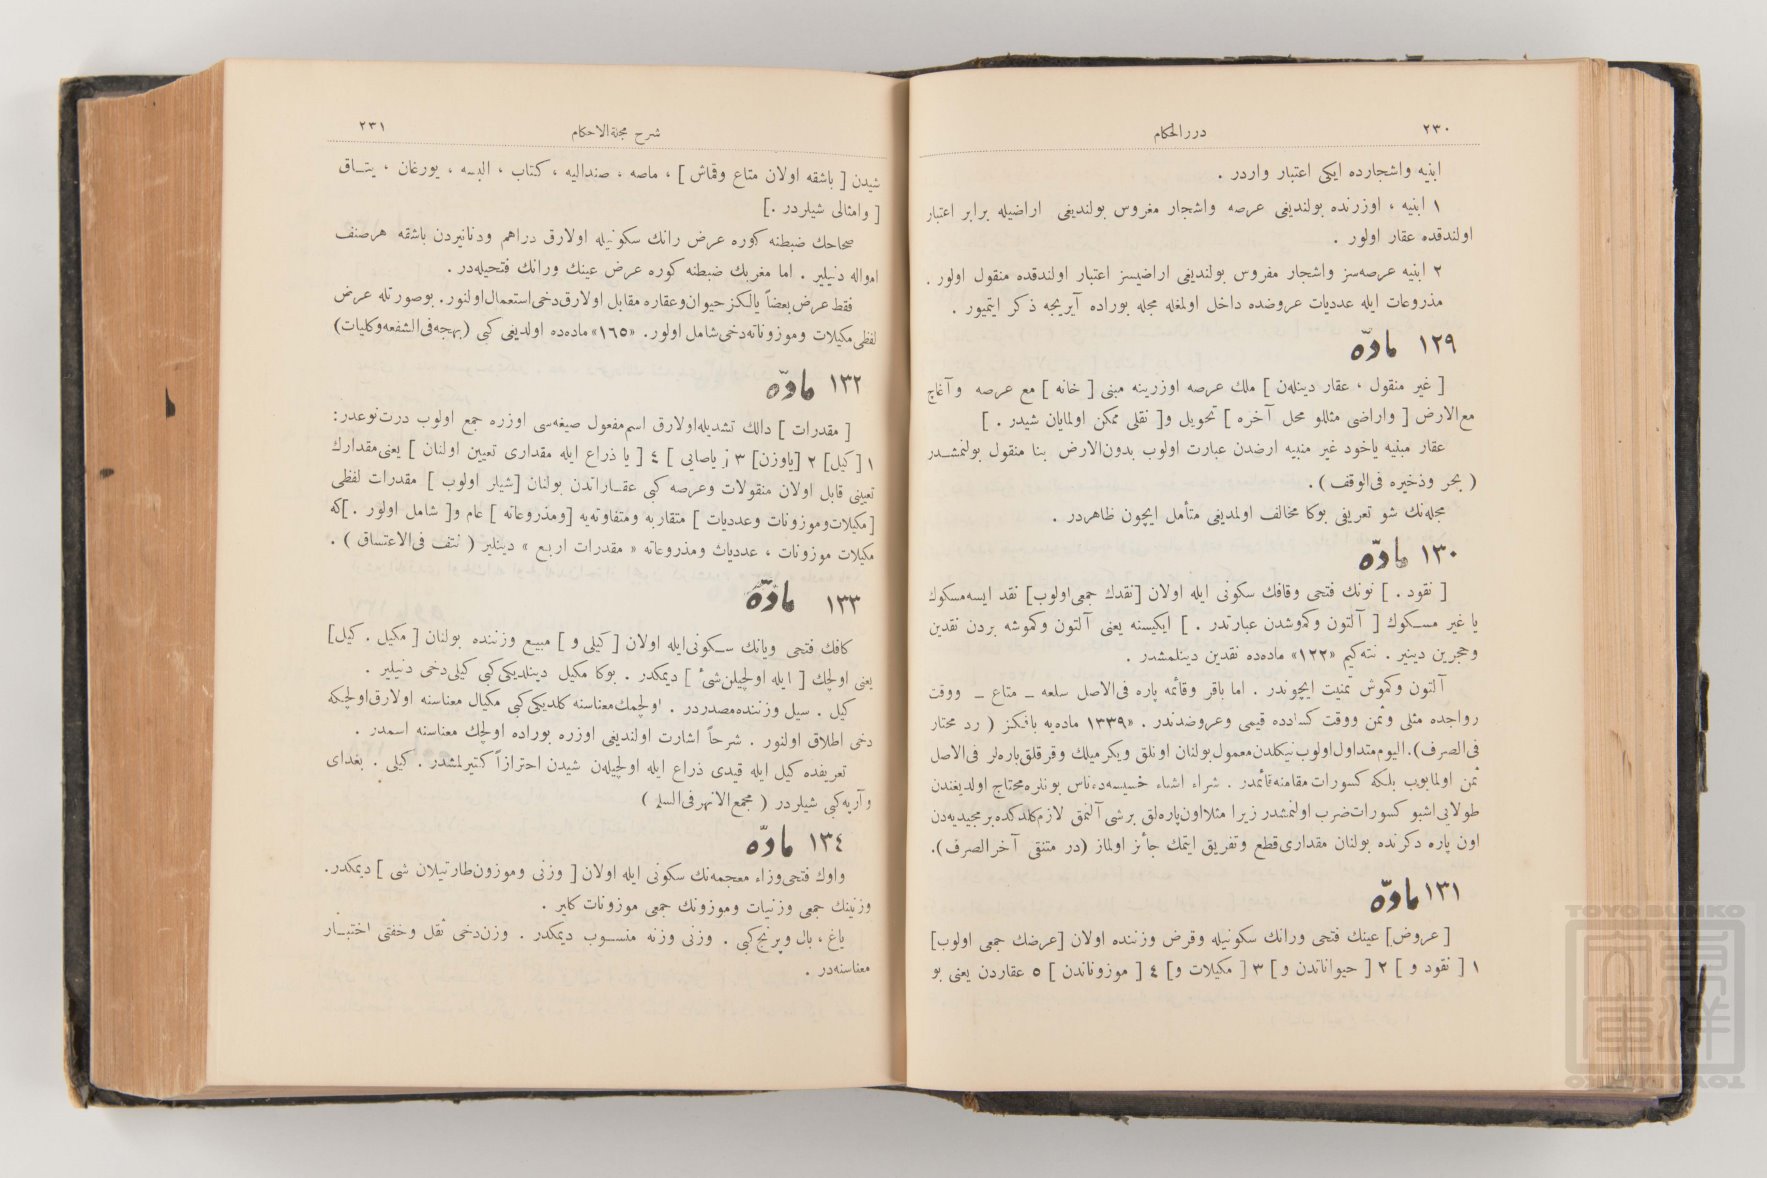 ٢٣٠
دررالحكام
ابنيه واشجارده ايكى اعتبار واردر .
١ ابنيه ، اوزرنده بولنديغى عرصه واشجار مغروس بولنديغى اراضيله برابر اعتبار
اولندقده عقار اولور .
٢ ابنيه عرصه‌سز واشجار مغروس بولنديغى اراضيسز اعتبار اولندقده منقول اولور .
مذروعات ايله عدديات عروضده داخل اولمغله مجله بوراده آيريجه ذكر ايتميور .
١٢٩ مادّه
[ غير منقول ، عقار دينلەن ] ملك عرصه اوزرينه مبنى [ خانه ] مع عرصه و آغاچ
مع‌الارض [ واراضى مثللو محل آخره ] تحويل و[ نقلى ممكن اولمايان شيدر . ]
عقار مبنيه ياخود غير مبنيه ارضدن عبارت اولوب بدون‌الارض بنا منقول بولنمشدر
( بحر وذخيره فى‌الوقف ) .
مجله‌نك شو تعريفى بوكا مخالف اولمديغى متأمل ايچون ظاهردر .
١٣٠ مادّه
[ نقود . ] نونك فتحى وقافك سكونى ايله اولان [نقدك جمعى‌اولوب] نقد ايسه‌مسكوك
يا غير مسكوك [ آلتون وكموشدن عبارتدر . ] ايكيسنه يعنى آلتون وكموشه بردن نقدين
وحجرين دينير . نته‌كيم «١٢٢» ماده‌ده نقدين دينلمشدر .
آلتون وكموش ثمنيت ايچوندر . اما باقر وقائمه پاره فى‌الاصل سلعه ــ متاع ــ ووقت
رواجده مثلى وثمن ووقت كسادده قيمى وعروضدندر . «١٣٣٩ ماده‌يه باقكز ( رد محتار
فى‌الصرف). اليوم‌متداول‌اولوب‌نيكلدن‌معمول‌بولنان اونلق ويكرميلك وقرقلق‌پاره‌لر فى‌الاصل
ثمن اولمايوب بلكه كسورات‌مقامنه‌قائمدر . شراء اشياء خسيسه‌ده‌ناس بونلره‌محتاج اولديغندن
طولايى‌اشبو كسورات‌ضرب اولنمشدر زيرا مثلااون‌پاره‌لق برشى آلنمق لازم‌كلدكده‌برمجيديه‌دن
اون پاره دكرنده بولنان مقدارى‌قطع وتفريق ايتمك جائز اولماز (در منتقى آخرالصرف).
١٣١ مادّه
[ عروض] عينك فتحى ورانك سكونيله وقرض وزننده اولان [عرضك جمعى اولوب]
١ [ نقود و ] ٢ [ حيواناتدن و ] ٣ [ مكيلات و] ٤ [ موزوناندن ] ٥ عقاردن يعنى بو
٢٣١
شرح مجلةالاحكام
شيدن [ باشقه اولان متاع وقماش ] ، ماصه ، صنداليه ، كتاب ، البسه ، يورغان ، يتـاق
[ وامثالى شيلردر .]
صحاحك ضبطنه كوره عرض رانك سكونيله اولارق دراهم ودنانيردن باشقه هرصنف
امواله دنيلير . اما مغربك ضبطنه كوره عرض عينك ورانك فتحيله‌در .
فقط عرض‌بعضاً يالكزحيوان‌وعقاره مقابل اولارق‌دخى‌استعمال‌اولنور. بوصورتله عرض
لفظى‌مكيلات وموزوناته‌دخى‌شامل اولور. «١٦٥» ماده‌ده اولديغى كبى (بهجه‌فى‌الشفعه‌وكليات)
١٣٢ مادّه
[ مقدرات ] دالك تشديله‌اولارق اسم‌مفعول صيغه‌سى اوزره جمع اولوب درت‌نوعدر:
١ [ كيل] ٢ [ياوزن] ٣ [ ياصايى ] ٤ [ يا ذراع ايله مقدارى تعيين اولنان ] يعنى‌مقدارك
تعيينى قابل اولان منقولات وعرصه كبى عقـاراتدن بولنان [شيلر اولوب ] مقدرات لفظى
[مكيلات‌وموزونات وعدديات ] متقاربه ومتفاوته‌يه [ومذروعاته ] عام و[ شامل اولور . ]كه
مكيلات موزونات ، عدديات ومذروعاته « مقدرات اربع » دينلير ( نتف فى‌الاعتساق ) .
١٣٣ مادّه
كافك فتحى ويانك سـكونى‌ايله اولان [ كيلى و ] مبيع وزننده بولنان [ مكيل . كيل]
يعنى اولچك [ ايله اولچيلن‌شىء ] ديمكدر . بوكا مكيل دينلديكى‌كبى كيلى‌دخى دنيلير .
كيل . سيل وزننده‌مصدردر . اولچمك‌معناسنه كلديكى‌كبى مكيال معناسنه اولارق‌اولچكه
دخى اطلاق اولنور . شرحاً اشارت اولنديغى اوزره بوراده اولچك معناسنه اسمدر .
تعريفده كيل ايله قيدى ذراع ايله اولچيله‌ن شيدن احترازاً كتيرلمشدر . كيلى . بغداى
وآرپه‌كبى شيلردر ( مجمع‌الانهرفى‌السلم )
١٣٤ مادّه
واوك فتحى‌وزاء معجمه‌نك سكونى ايله اولان [ وزنى وموزون‌طارتيلان شى ] ديمكدر.
وزنينك جمعى وزنيات وموزونك جمعى موزونات كلير .
ياغ ، بال وپرنج‌كبى . وزنى وزنه منسـوب ديمكدر . وزن‌دخى ثقل وخفتى اختبـار
معناسنه‌در .
TOYO BUNKO
東洋文庫
TOYO BUNKO